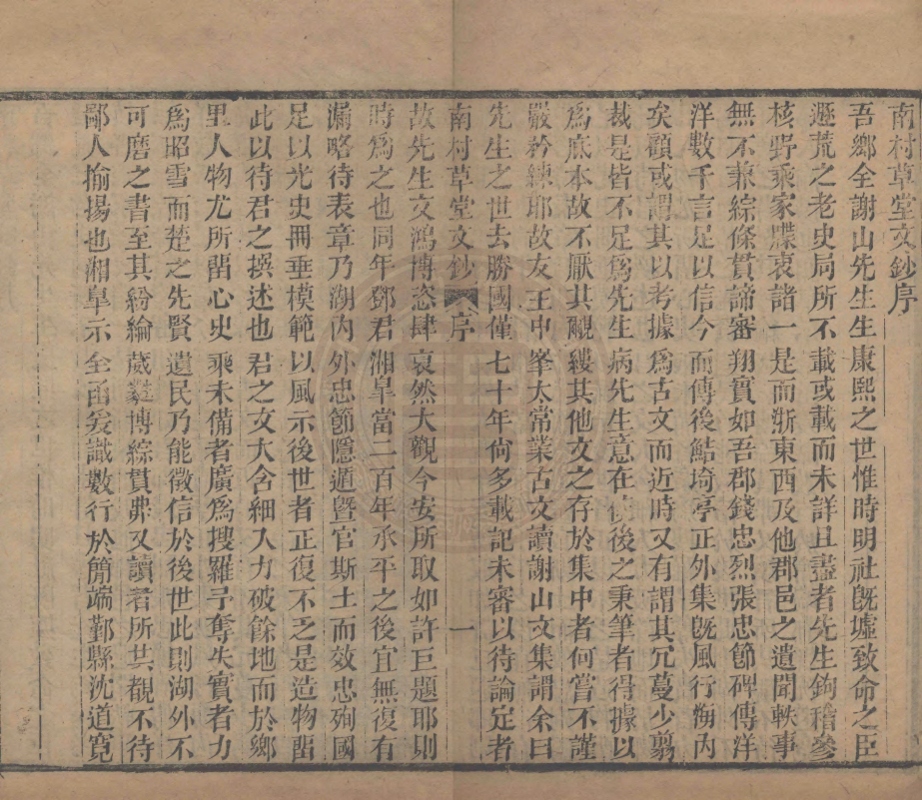 南村草堂文鈔序
吾鄉全謝山先生生康熙之世惟時明社旣墟致命之臣
遯荒之老史局所不載或載而未詳且盡者先生鉤稽參
核野乘家牒裒諸一是而浙東西及他郡邑之遺聞軼事
無不兼綜條貫諦審翔實如吾郡錢忠烈張忠節碑傳洋
洋數千言足以信今而傳後鮚埼亭正外集旣風行海內
矣顧或謂其以考據爲古文而近時又有謂其冗蔓少翦
裁是皆不足爲先生病先生意在使後之秉筆者得據以
爲底本故不厭其覼縷其他文之存於集中者何嘗不謹
嚴矜鍊耶故友王中峯太常業古文讀謝山文集謂余曰
先生之世去勝國僅七十年尙多載記未審以待論定者
南村草堂文鈔 序 一
故先生文鴻博恣肆裒然大觀今安所取如許巨題耶則
時爲之也同年鄧君湘皐當二百年承平之後宜無復有
漏略待表章乃湖內外忠節隱遁曁官斯土而效忠殉國
足以光史冊垂模範以風示後世者正復不乏是造物畱
此以待君之撰述也君之文大含細入力破餘地而於鄉
里人物尤所畱心史乘未備者廣爲搜羅予奪失實者力
爲昭雪而楚之先賢遺民乃能徵信於後世此則湖外不
可磨之書至其紛綸葳蕤博綜貫弗又讀者所共觀不待
鄙人揄揚也湘皐示全函爰識數行於簡端鄞縣沈道寬